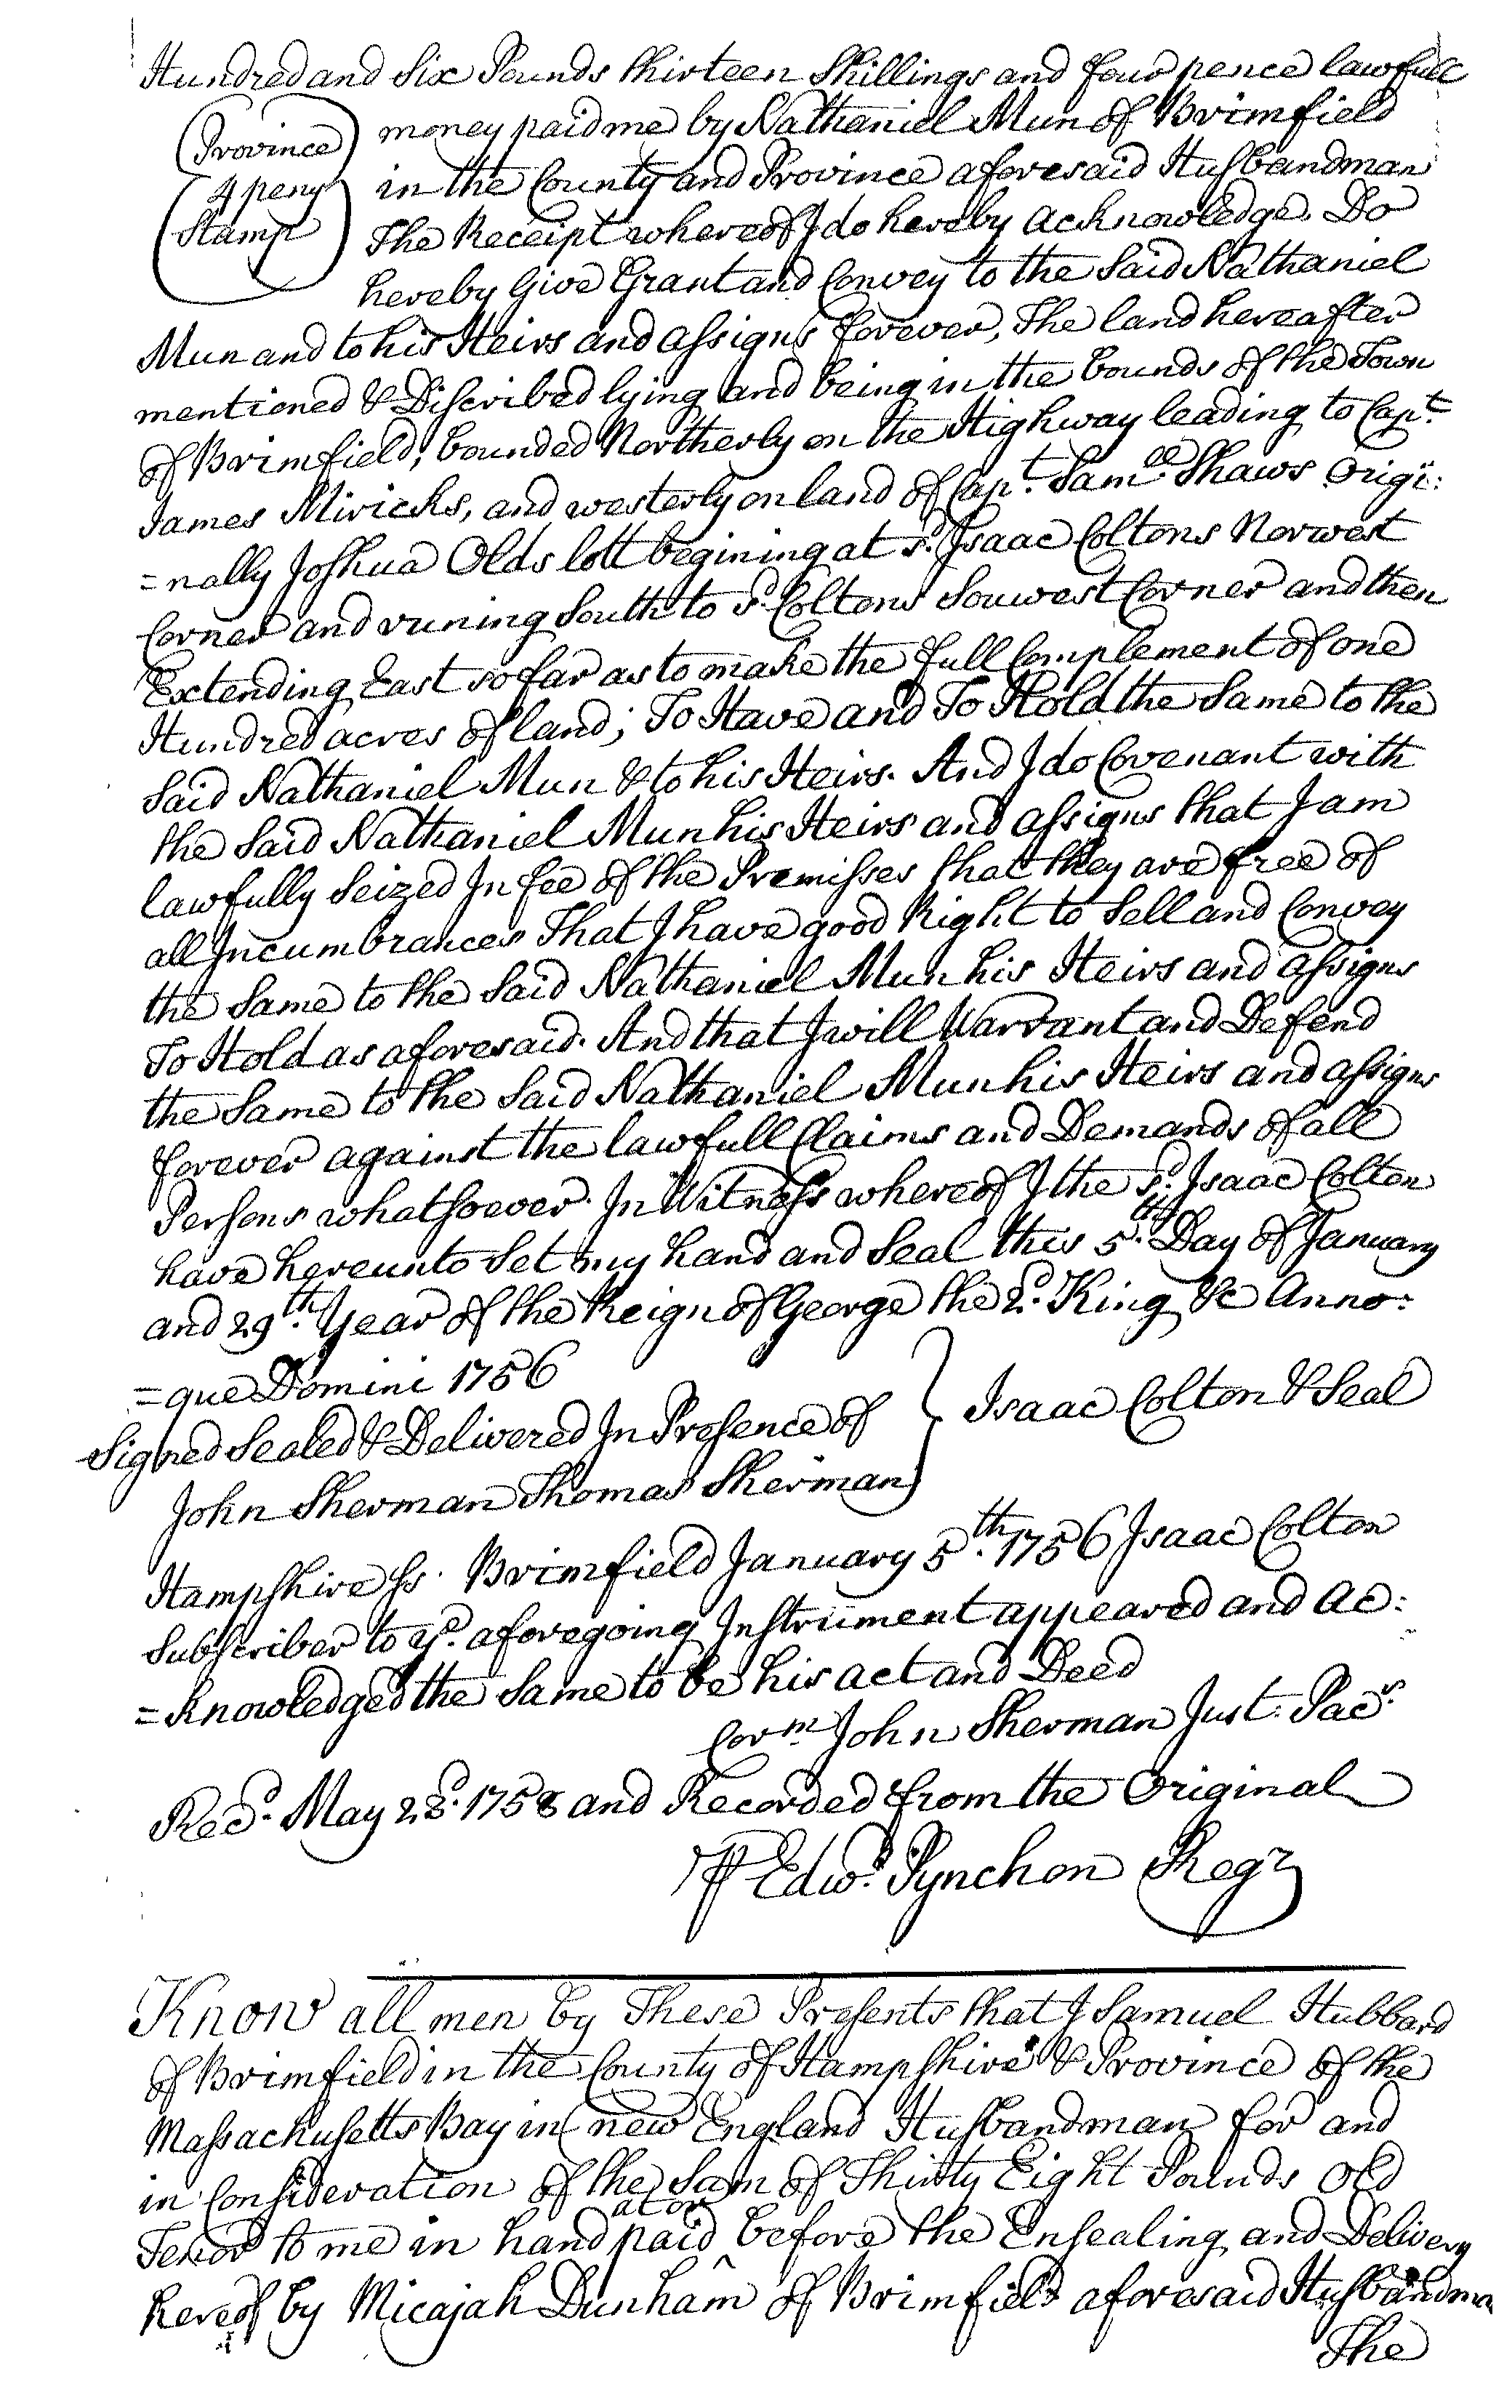 Hundred and Six Pounds thirteen Shillings and four pence lawfull
(Province
4 peny
Stamp)
money paid me by Nathaniel Mun of Brimfield
in the County and Province aforesaid Husbandman
The Receipt whereof I do hereby acknowledge. Do
hereby Give Grant and Convey to the Said Nathaniel
Mun and to his Heirs and assigns forever, The land hereafter
mentioned & Discribed lying and being in the bounds of the Town
of Brimfield, bounded Northerly on the Highway leading to Capt.
James Miricks, and westerly on land of Capt. Samll. Shaws Origi:
=nally Joshua Olds lott begining at sd. Isaac Coltons Norwest
Corner and runing South to sd. Coltons Souwest Corner and then
Extending East so far as to make the full Complement of one
Hundred acres of land; To Have and To Hold the Same to the
Said Nathaniel Mun & to his Heirs. And I do Covenant with
the Said Nathaniel Mun his Heirs and assigns that I am
lawfully Seized In fee of the Premisses that they are free of
all Incumbrances That I have good Right to Sell and Convey
the Same to the Said Nathaniel Mun his Heirs and assigns
To Hold as aforesaid. And that I will Warrant and Defend
the Same to the Said Nathaniel Mun his Heirs and assigns
forever against the lawfull Claims and Demands of all
Persons whatsoever. In Witness whereof I the sd. Isaac Colton
have hereunto Set my hand and Seal this 5th. Day of January
and 29th. Year of the Reign of George the 2d. King &c Anno:
=que Domini 1756
Signed Sealed & Delivered In Presence of } Isaac Colton & Seal
John Sherman Thomas Sherman
Hampshire ss. Brimfield January 5th. 1756 Isaac Colton
Subscriber to ye. aforegoing Instrument appeared and ac:
=knowledged the Same to be his act and Deed
Corm. John Sherman Just. Pacs.
Recd. May 28. 1758 and Recorded from the Original
P Edwd. Pynchon Regr
Know all men by These Presents that I Samuel Hubbard
of Brimfield in the County of Hampshire & Province of the
Massachusetts Bay in new England Husbandman for and
in Consideration of the Sam of Thirty Eight Pounds Old
Tenor to me in hand paid ator before the Ensealing and Delivery
hereof by Micajah Dunham of Brimfield aforesaid Husbandma
The